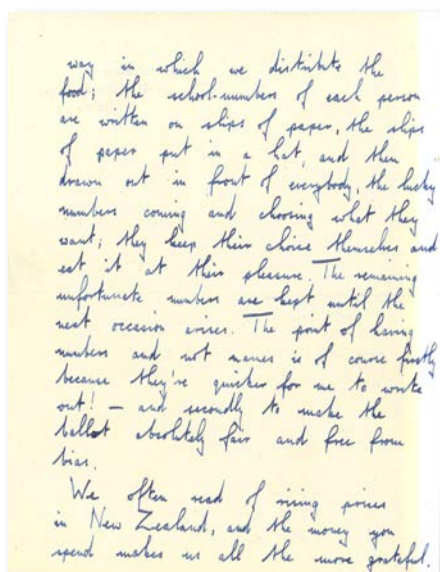 way in which we distribute the
food; the school-numbers of each person
are written on slips of paper, the slips
of paper put in a hat, and then
drawn out in front of everybody, the lucky
numbers coming and choosing what they
want; they keep their choice themselves and
eat it at their pleasure. The remaining
unfortunate numbers are kept until the
next occasion arises. The point of having
numbers and not names is of course firstly
because they're quicker for me to write
out! — and secondly to make the
ballot absolutely fair and free from
bias.
We often read of rising prices
in New Zealand, and the money you
spend makes us all the more grateful.